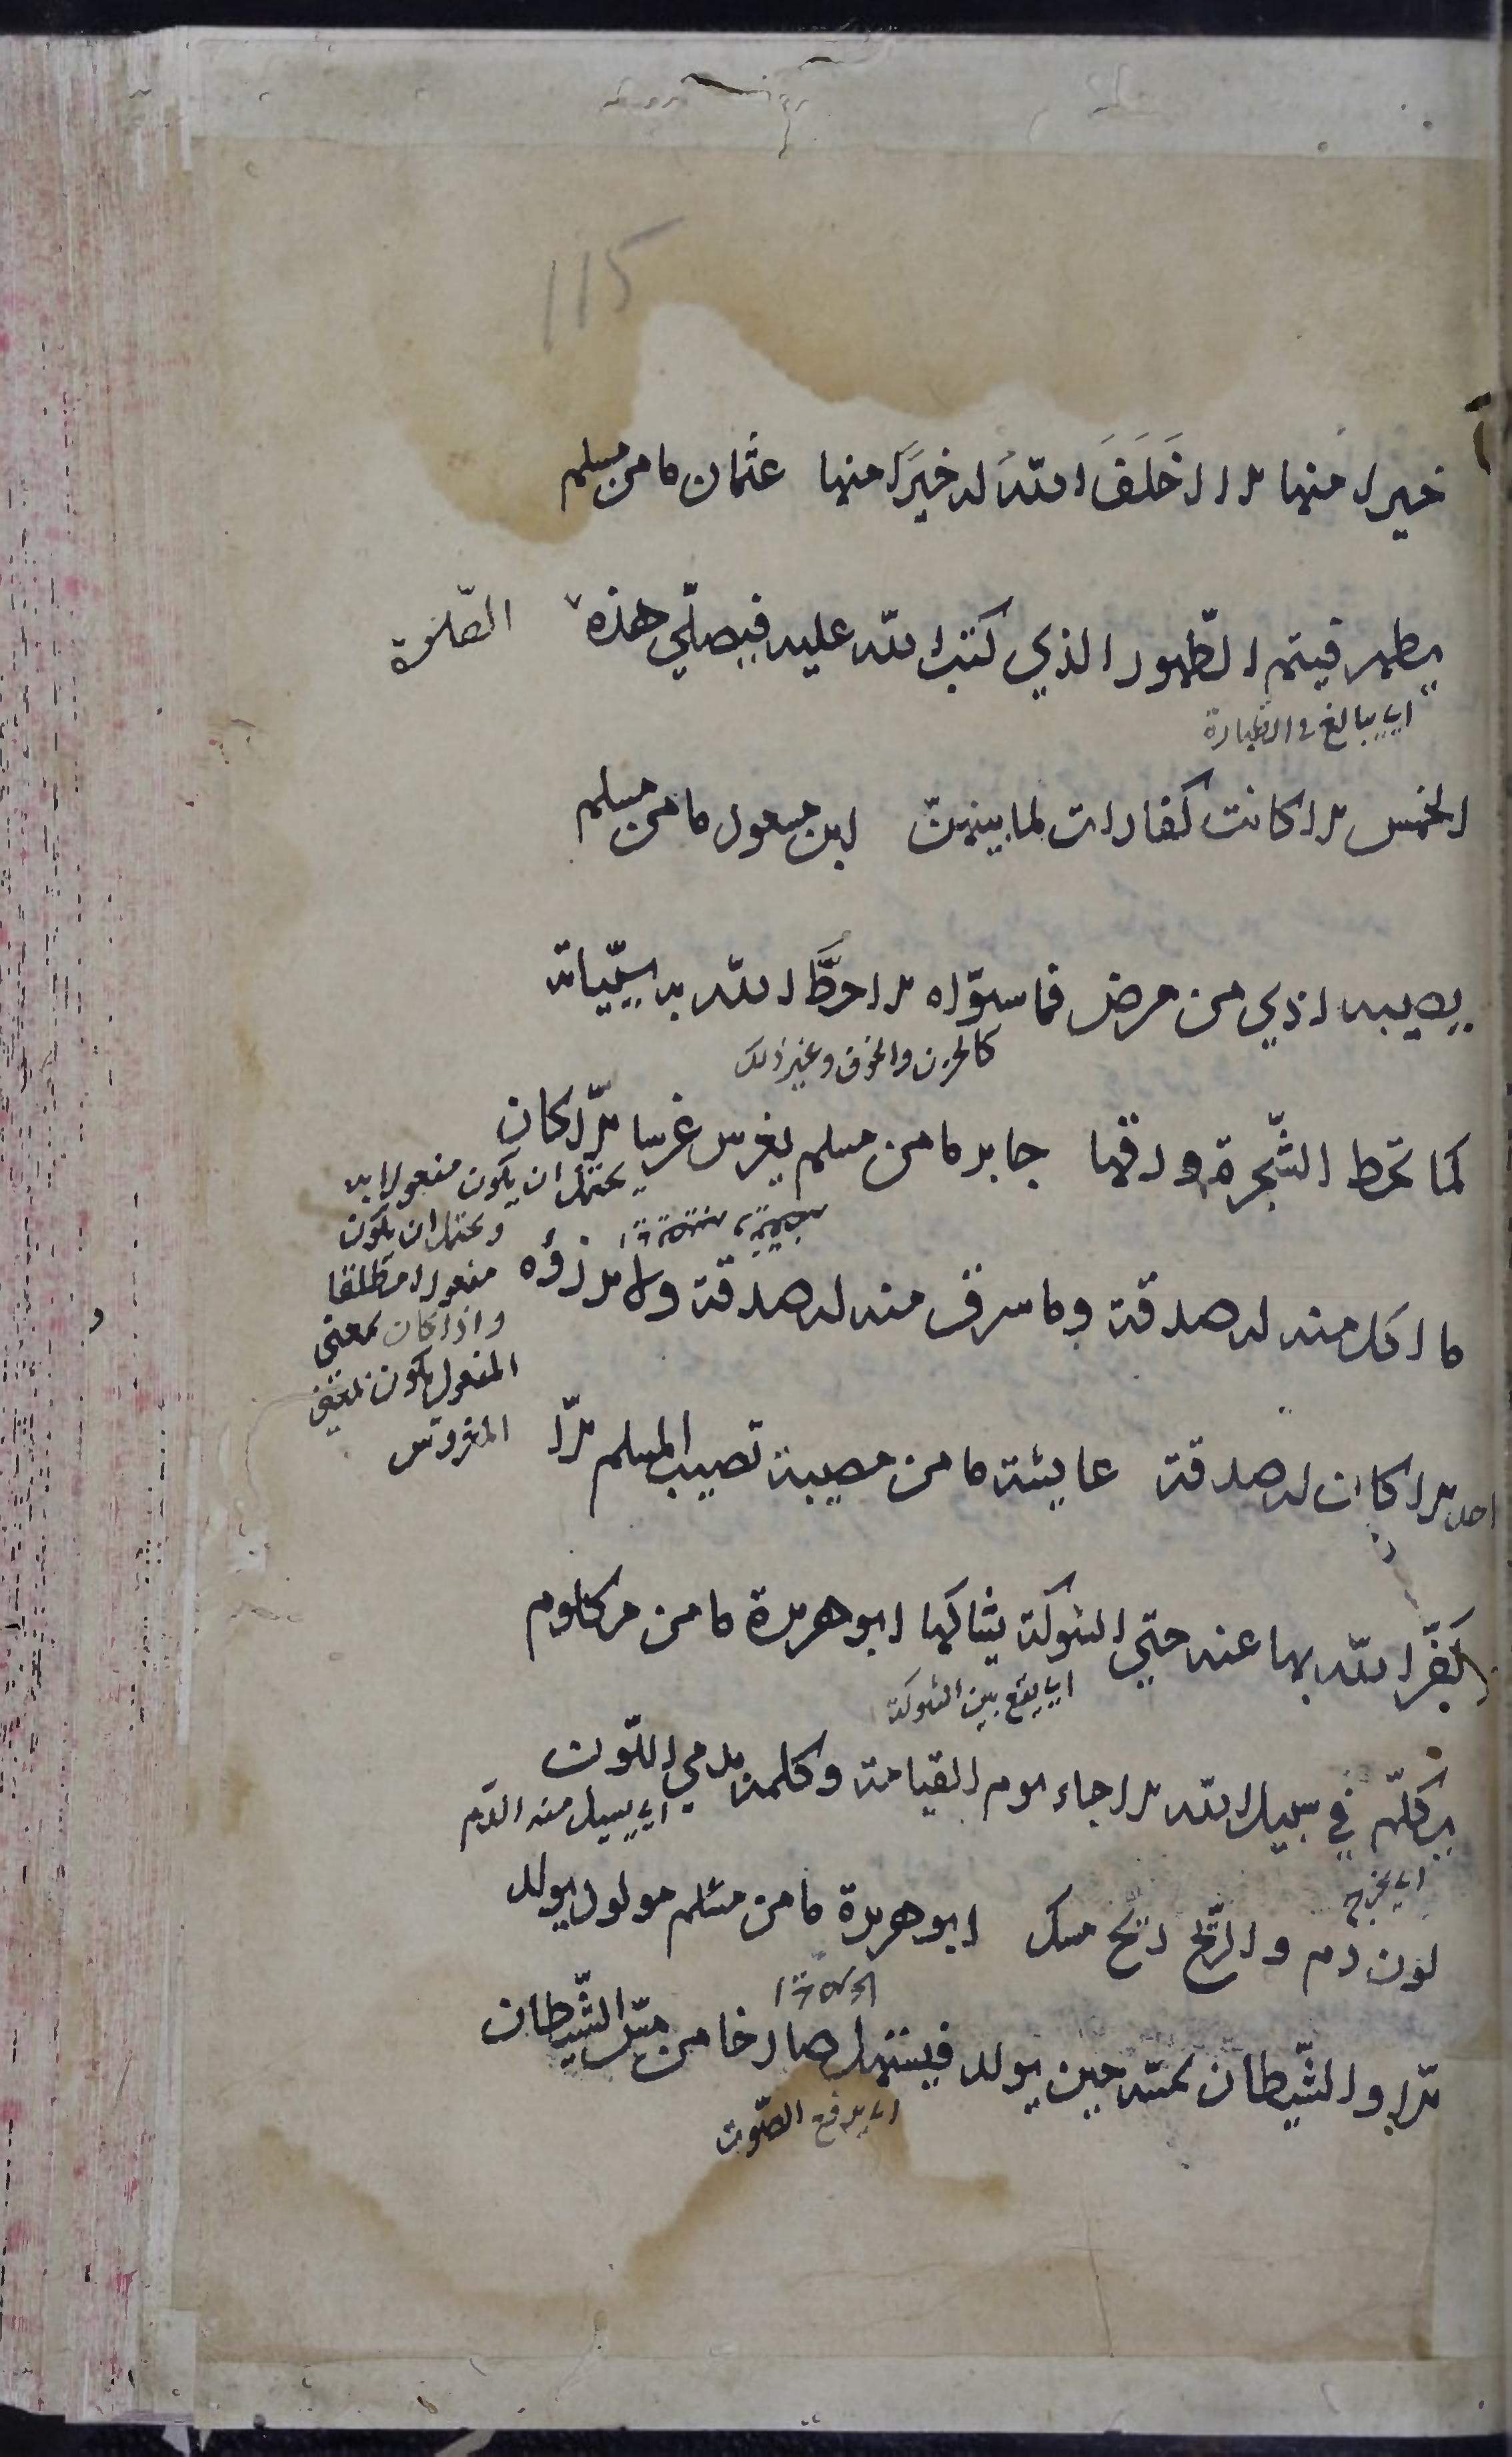 115
خيرا منها الا اخلف الله له خيرا منها عثمان ما من مسلم
يطهر فيتم الطهور الذي كتب الله عليه فيصلي هذه الصلوة
اي يبالغ في الطهارة
الخمس الا كانت كفارات لما بينهن ابن مسعود ما من مسلم
يصيبه اذي من مرض فما سواه الا حط الله به سيّياته
كالحزن والخوف وغير ذلك
كما تحط الشجرة ورقها جابر ما من مسلم يغرس غرسا الّا كان
يحتمل ان يكون مفعولا به
ويحتمل ان يكون
مفعولا مطلقا
واذا كان بمعنى
المفعول يكون بمعنى
المغروس
ما اكل منه له صدقة وما سرق منه له صدقة ولا يرزؤه
احد الا كان له صدقة عايشة ما من مصيبة تصيب المسلم الّا
كفّر الله بها عنه حتي الشوكة يشاكها ابو هريرة ما من مكلوم
يكلم في سبيل الله الا جاء يوم القيامة وكلمه يدمي اللّون
اي يسيل منه الدم
اي يجرح
لون دم والرّيح ريح مسك ابو هريرة ما من مسلم مولود يولد
الّا والشّيطان يمسّه حين يولد فيستهل صارخا من مسّ الشّيطان
اي يرفع الصّوت